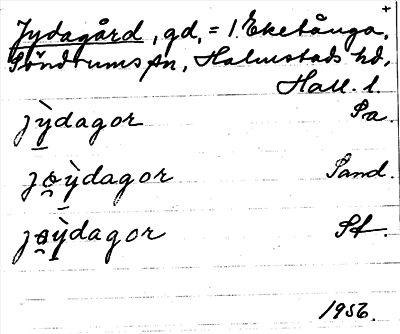 +
Jydagård, gd, = 1 Eketånga,
Söndrums sn, Halmstads hd,
Hall. l.
jỳdagor Pa.
jo̯ỳdagor Sand.
jo̯ỳdagor St.
1956.